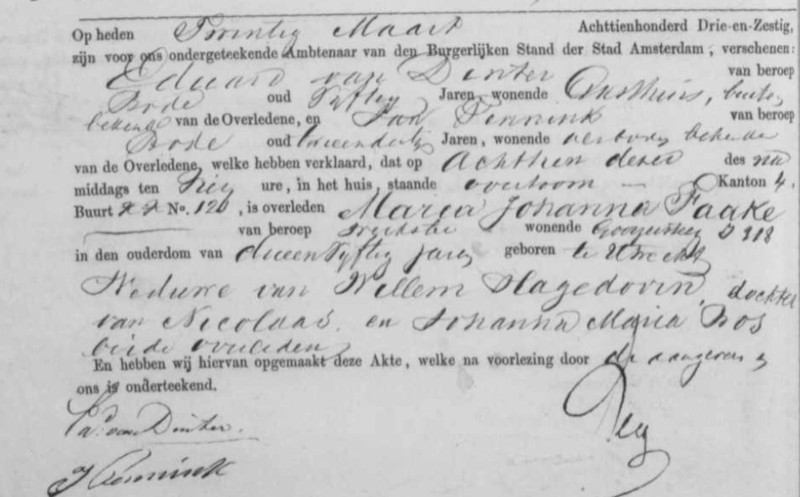 Op heden Twintig Maart Achttienhonderd Drie-en-Zestig,
zijn voor ons ondergeteekende Ambtenaar van den Burgerlijken Stand der Stad Amsterdam, verschenen:
Eduard van Dinter van beroep
Bode oud Vyftig Jaren, wonende Gasthuis,
bekende van de Overledene, en Jan Tennink van beroep
Bode oud Jaren, wonende bekende
van de Overledene, welke hebben verklaard, dat op Achttien dezer des na
middags ten Drie ure, in het huis, staande overtoom Kanton 4,
Buurt No. 120, is overleden Maria Johanna Faake
van beroep wonende 318
in den ouderdom van drieenvyftig jaren geboren te Utrecht
Weduwe van Willem Hagedoorn, dochter
van Nicolaas en Johanna Maria Bos
beide overleden
En hebben wij hiervan opgemaakt deze Akte, welke na voorlezing door de aangevers &
ons is onderteekend.
van Dinter.